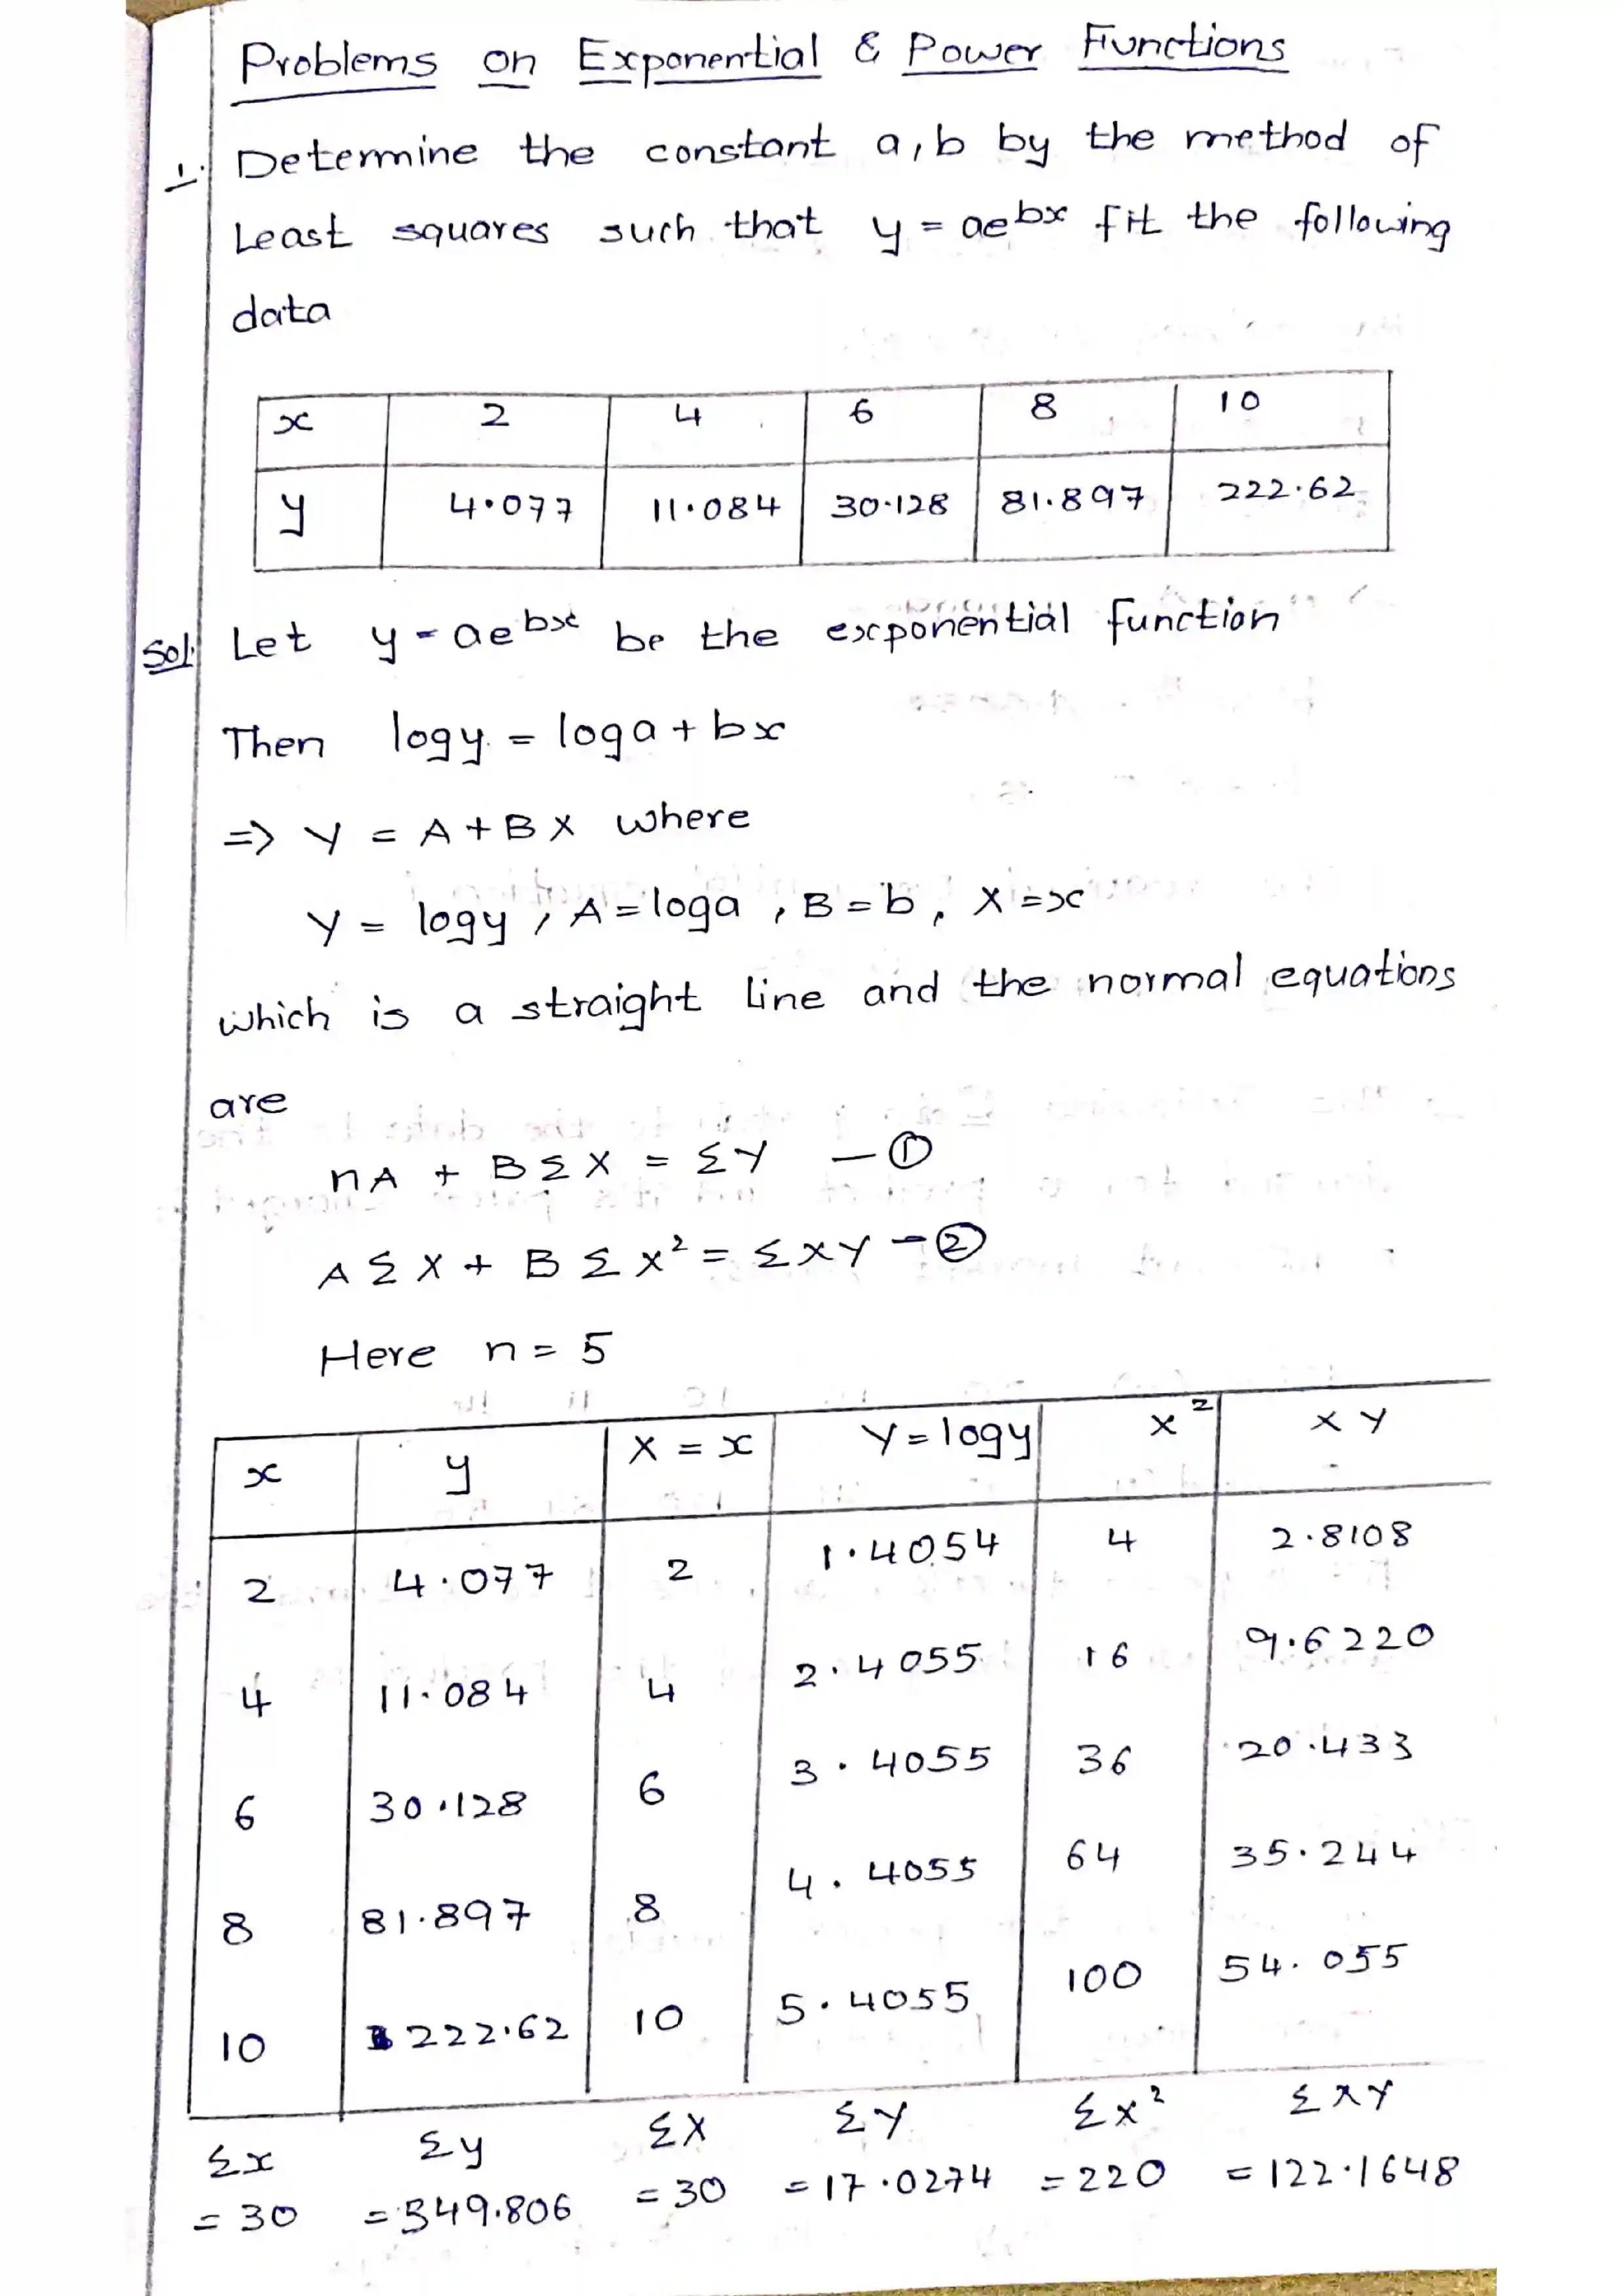 Problems on Exponential & Power Functions
1. Determine the constant a,b by the method of
Least squares such that y = ae^bx fit the following
data
x 2 4 6 8 10
y 4.077 11.084 30.128 81.897 222.62
Sol: Let y = ae^bx be the exponential function
Then log y = log a + bx
=> Y = A + BX where
Y = log y, A = log a, B = b, X = x
which is a straight line and the normal equations
are
nA + BΣX = ΣY — ①
AΣX + BΣX² = ΣXY — ②
Here n = 5
x y X = x Y = log y X² XY
2 4.077 2 1.4054 4 2.8108
4 11.084 4 2.4055 16 9.6220
6 30.128 6 3.4055 36 20.433
8 81.897 8 4.4055 64 35.244
10 222.62 10 5.4055 100 54.055
Σx Σy ΣX ΣY ΣX² ΣXY
= 30 = 349.806 = 30 = 17.0274 = 220 = 122.1648